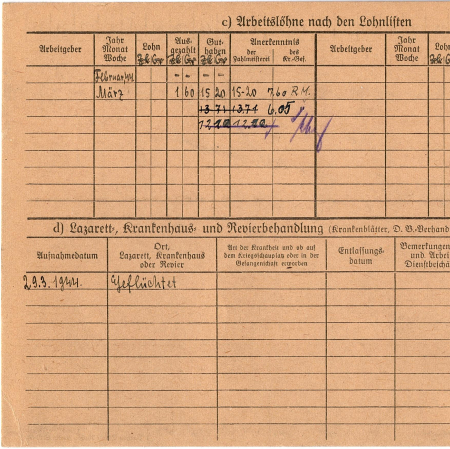 c) Arbeitslöhne nach den Lohnlisten
Arbeitgeber Jahr Monat Woche Lohn Zl. Gr. Ausgezahlt Zl. Gr. Guthaben Zl. Gr. Anerkenntnis der Zahlmeisterei des Kr.-Gef. Arbeitgeber Jahr Monat Woche Lohn Zl. Gr.
Februar 44 - - - -
März 1 60 15 20 15-20 7.60 R.M.
13 71 13.71 6.05
d) Lazarett-, Krankenhaus- und Revierbehandlung (Krankenblätter, D. B.-Verhand
Aufnahmedatum Ort, Lazarett, Krankenhaus oder Revier Art der Krankheit und ob auf dem Kriegsschauplatz oder in der Gefangenschaft erworben Entlassungsdatum Bemerkungen und Arbei Dienstbeschä
29.3.1944. Geflüchtet